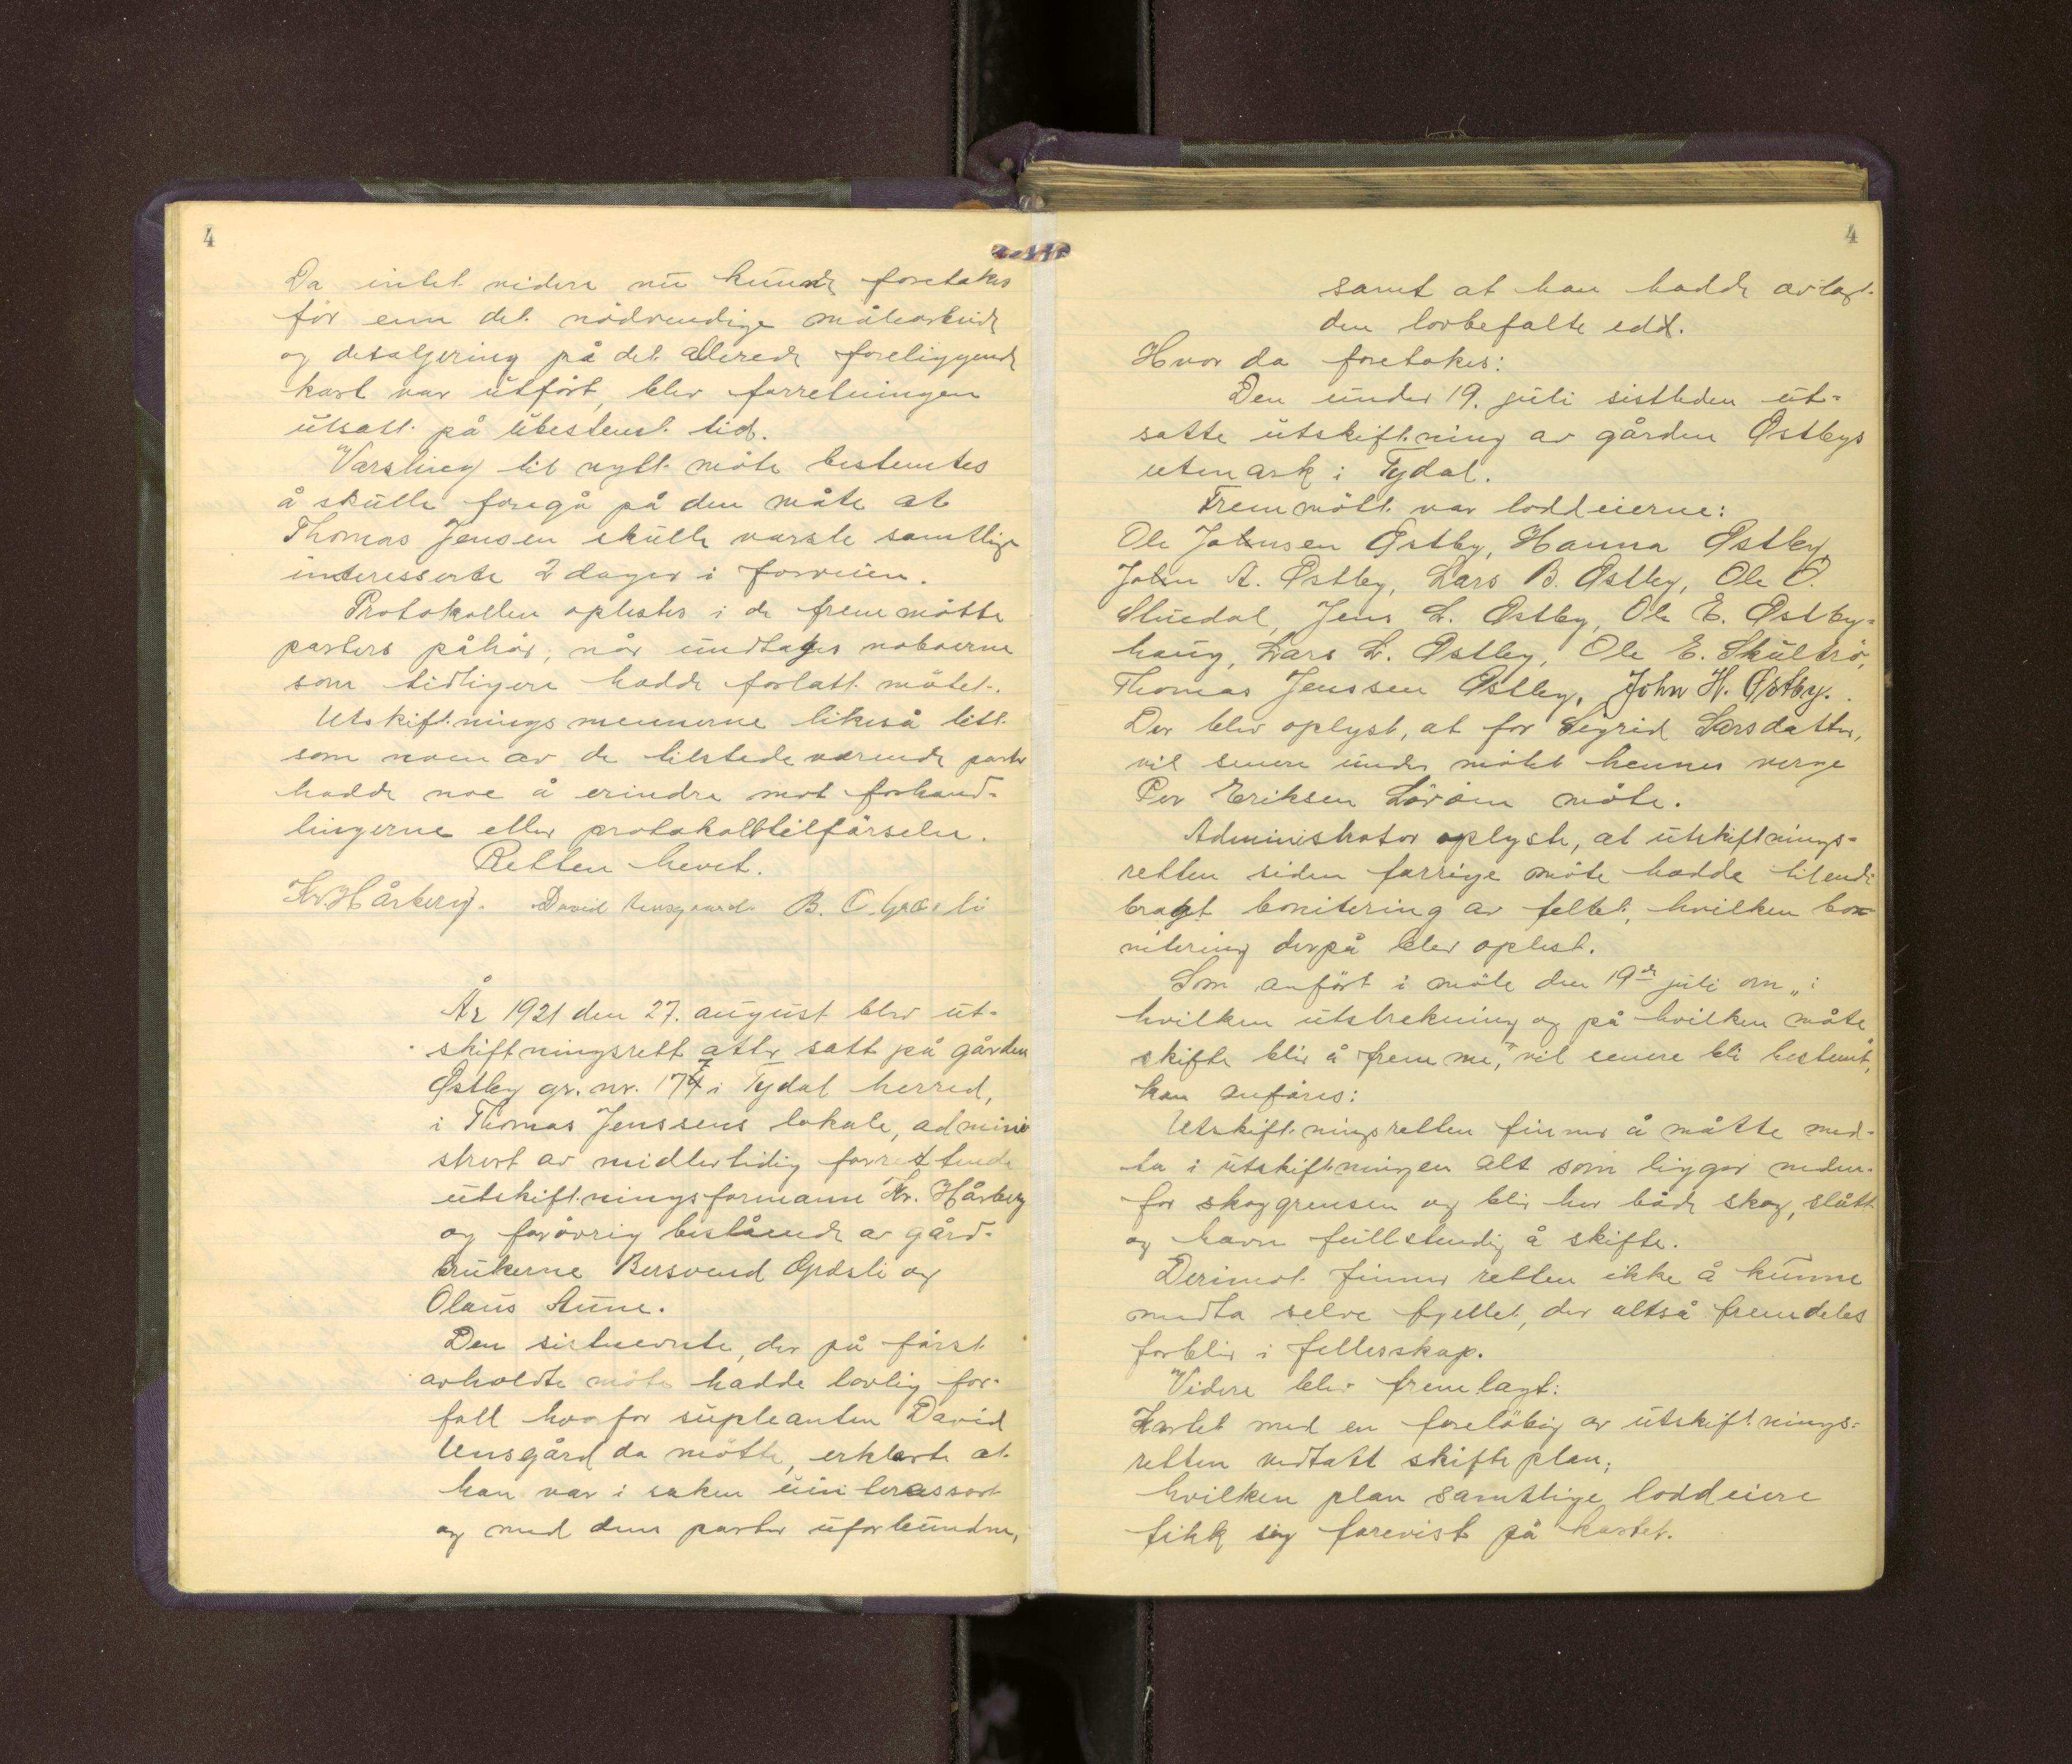 4
Da intet videre nu kunde foretakes
før enn det nødvendige målearbeide
og detaljering på det allerede foreliggende
kart var utført, blev forretningen
utsatt på ubestemt tid.
Varsling til nytt møte bestemtes
å skulle foregå på den måte at
Thomas Jensen skulle varsle samtlige
interesserte 2 dager i forveien.
Protokollen oplestes i de fremmøtte
parters påhør, når undtages naboerne
som tidligere hadde forlatt møtet.
Utskiftningsmennerne likeså litt
som noen av de tilstedeværende parter
hadde noe å erindre mot forhand-
lingerne eller protokolltilførselen.
Retten hevet.
Kr. Hårberg. David Unsgaard B. O. Græsli
År 1921 den 27. august blev ut-
skiftningsrett atter satt på gården
Østby gr. nr. 177 i Tydal herred,
i Thomas Jenssens lokale, admini
strert av midlertidig forrettende
utskiftningsformann Kr. Hårberg
og forøvrig bestående av gård-
brukerne Bersvend Græsli og
Olaus Aune.
Den sistnevnte, der på først
avholdte møte hadde lovlig for-
fall hvorfor supleanten David
Unsgård da møtte, erklærte at
han var i saken uinteressert
og med dens parter uforbunden,
4
samt at han hadde avlagt
den lovbefalte edd.
Hvor da foretokes:
Den under 19. juli sistleden ut-
satte utskiftning av gården Østbys
utmark i Tydal.
Fremmøtt var loddeierne:
Ole Johnsen Østby, Hanna Østby,
John A. Østby, Lars B. Østby, Ole O.
Stuedal, Jens L. Østby, Ole E. Østby-
haug, Lars L. Østby, Ole E. Skultrø,
Thomas Jenssen Østby, John H. Østby.
Der blev oplyst, at for Sigrid Larsdatter,
vil senere under møtet hennes verge
Per Eriksen Løvøen møte.
Administrator oplyste, at utskiftnings-
retten siden forrige møte hadde tilende
bragt bonitering av feltet, hvilken bo-
nitering derpå blev oplest.
Som anført i møte den 19de juli om „i
hvilken utstrekning og på hvilken måte
skifte blir å fremme," vil senere bli bestemt",
kan anføres:
Utskiftningsretten finner å måtte med-
ta i utskiftningen alt som ligger neden-
for skoggrensen og blir her både skog, slått
og havn fullstendig å skifte.
Derimot finner retten ikke å kunne
medta selve fjellet, der altså fremdeles
forblir i fellesskap.
Videre blev fremlagt:
Kartet med en foreløbig av utskiftnings-
retten vedtatt skifteplan,
hvilken plan samtlige loddeiere
fikk sig forevist på kartet.